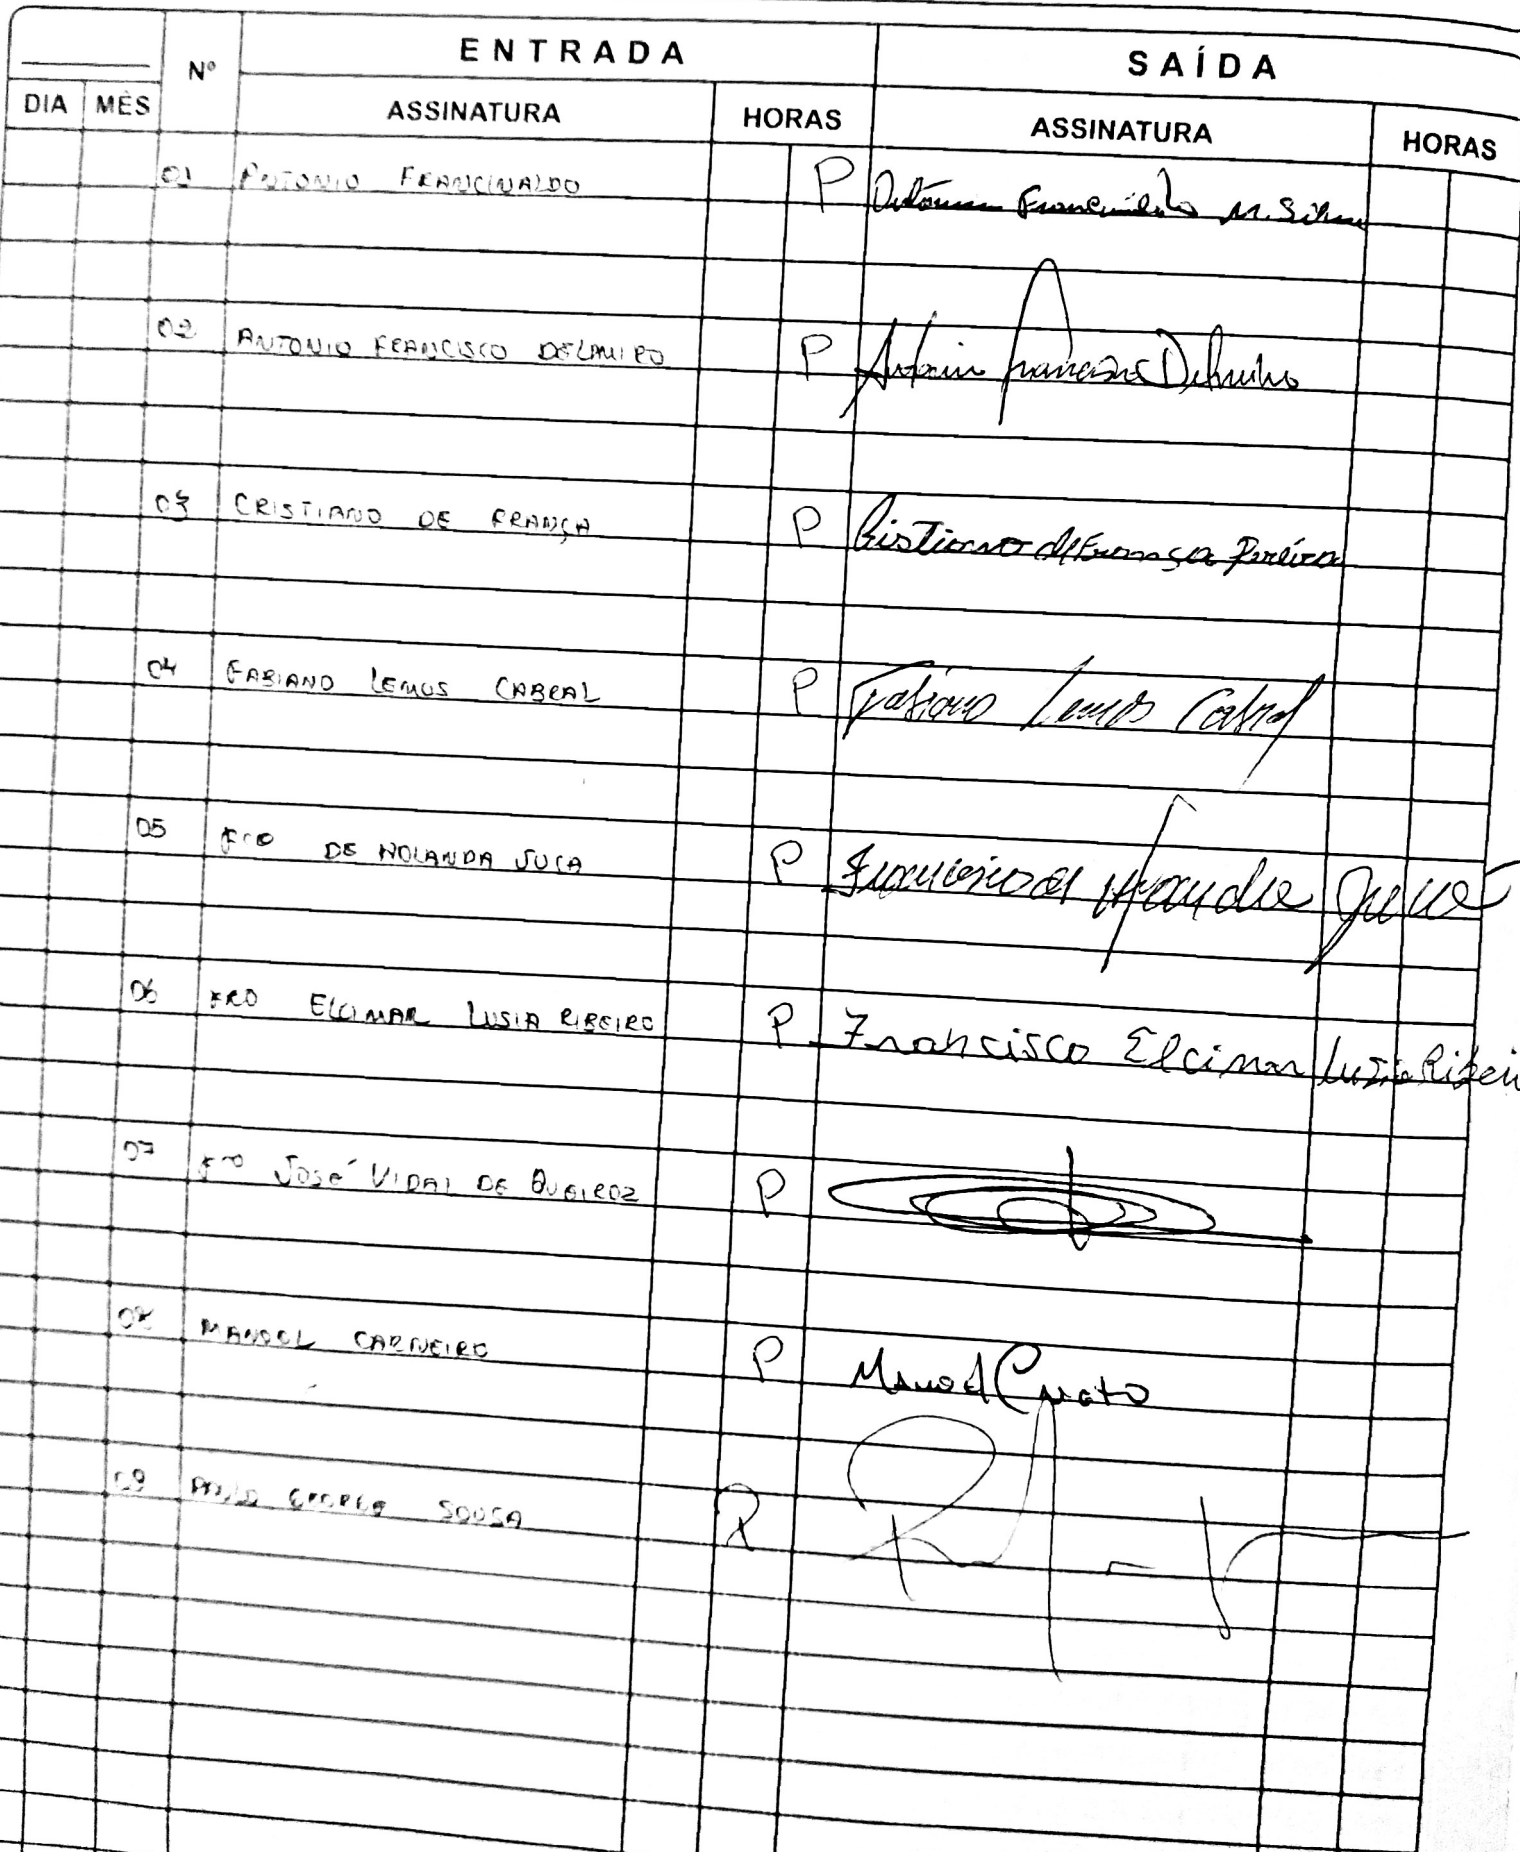 ENTRADA SAÍDA
Nº
DIA MÊS ASSINATURA HORAS ASSINATURA HORAS
01 ANTONIO FRANCINALDO P Antônio Francinaldo M. Silva
02 ANTONIO FRANCISCO DELMIRO P Antonio Francisco Delmiro
03 CRISTIANO DE FRANÇA P Cristiano de França Pereira
04 FABIANO LEMOS CABRAL P Fabiano Lemos Cabral
05 FCO DE HOLANDA JUCA P Francisco de Holanda Juca
06 FRO ELCIMAR LUSIA RIBEIRO P Francisco Elcimar Lusia Ribei
07 FCO JOSÉ VIDAL DE QUEIROZ P
08 MANOEL CARNEIRO P Manoel
09 PAULO GEORGE SOUSA